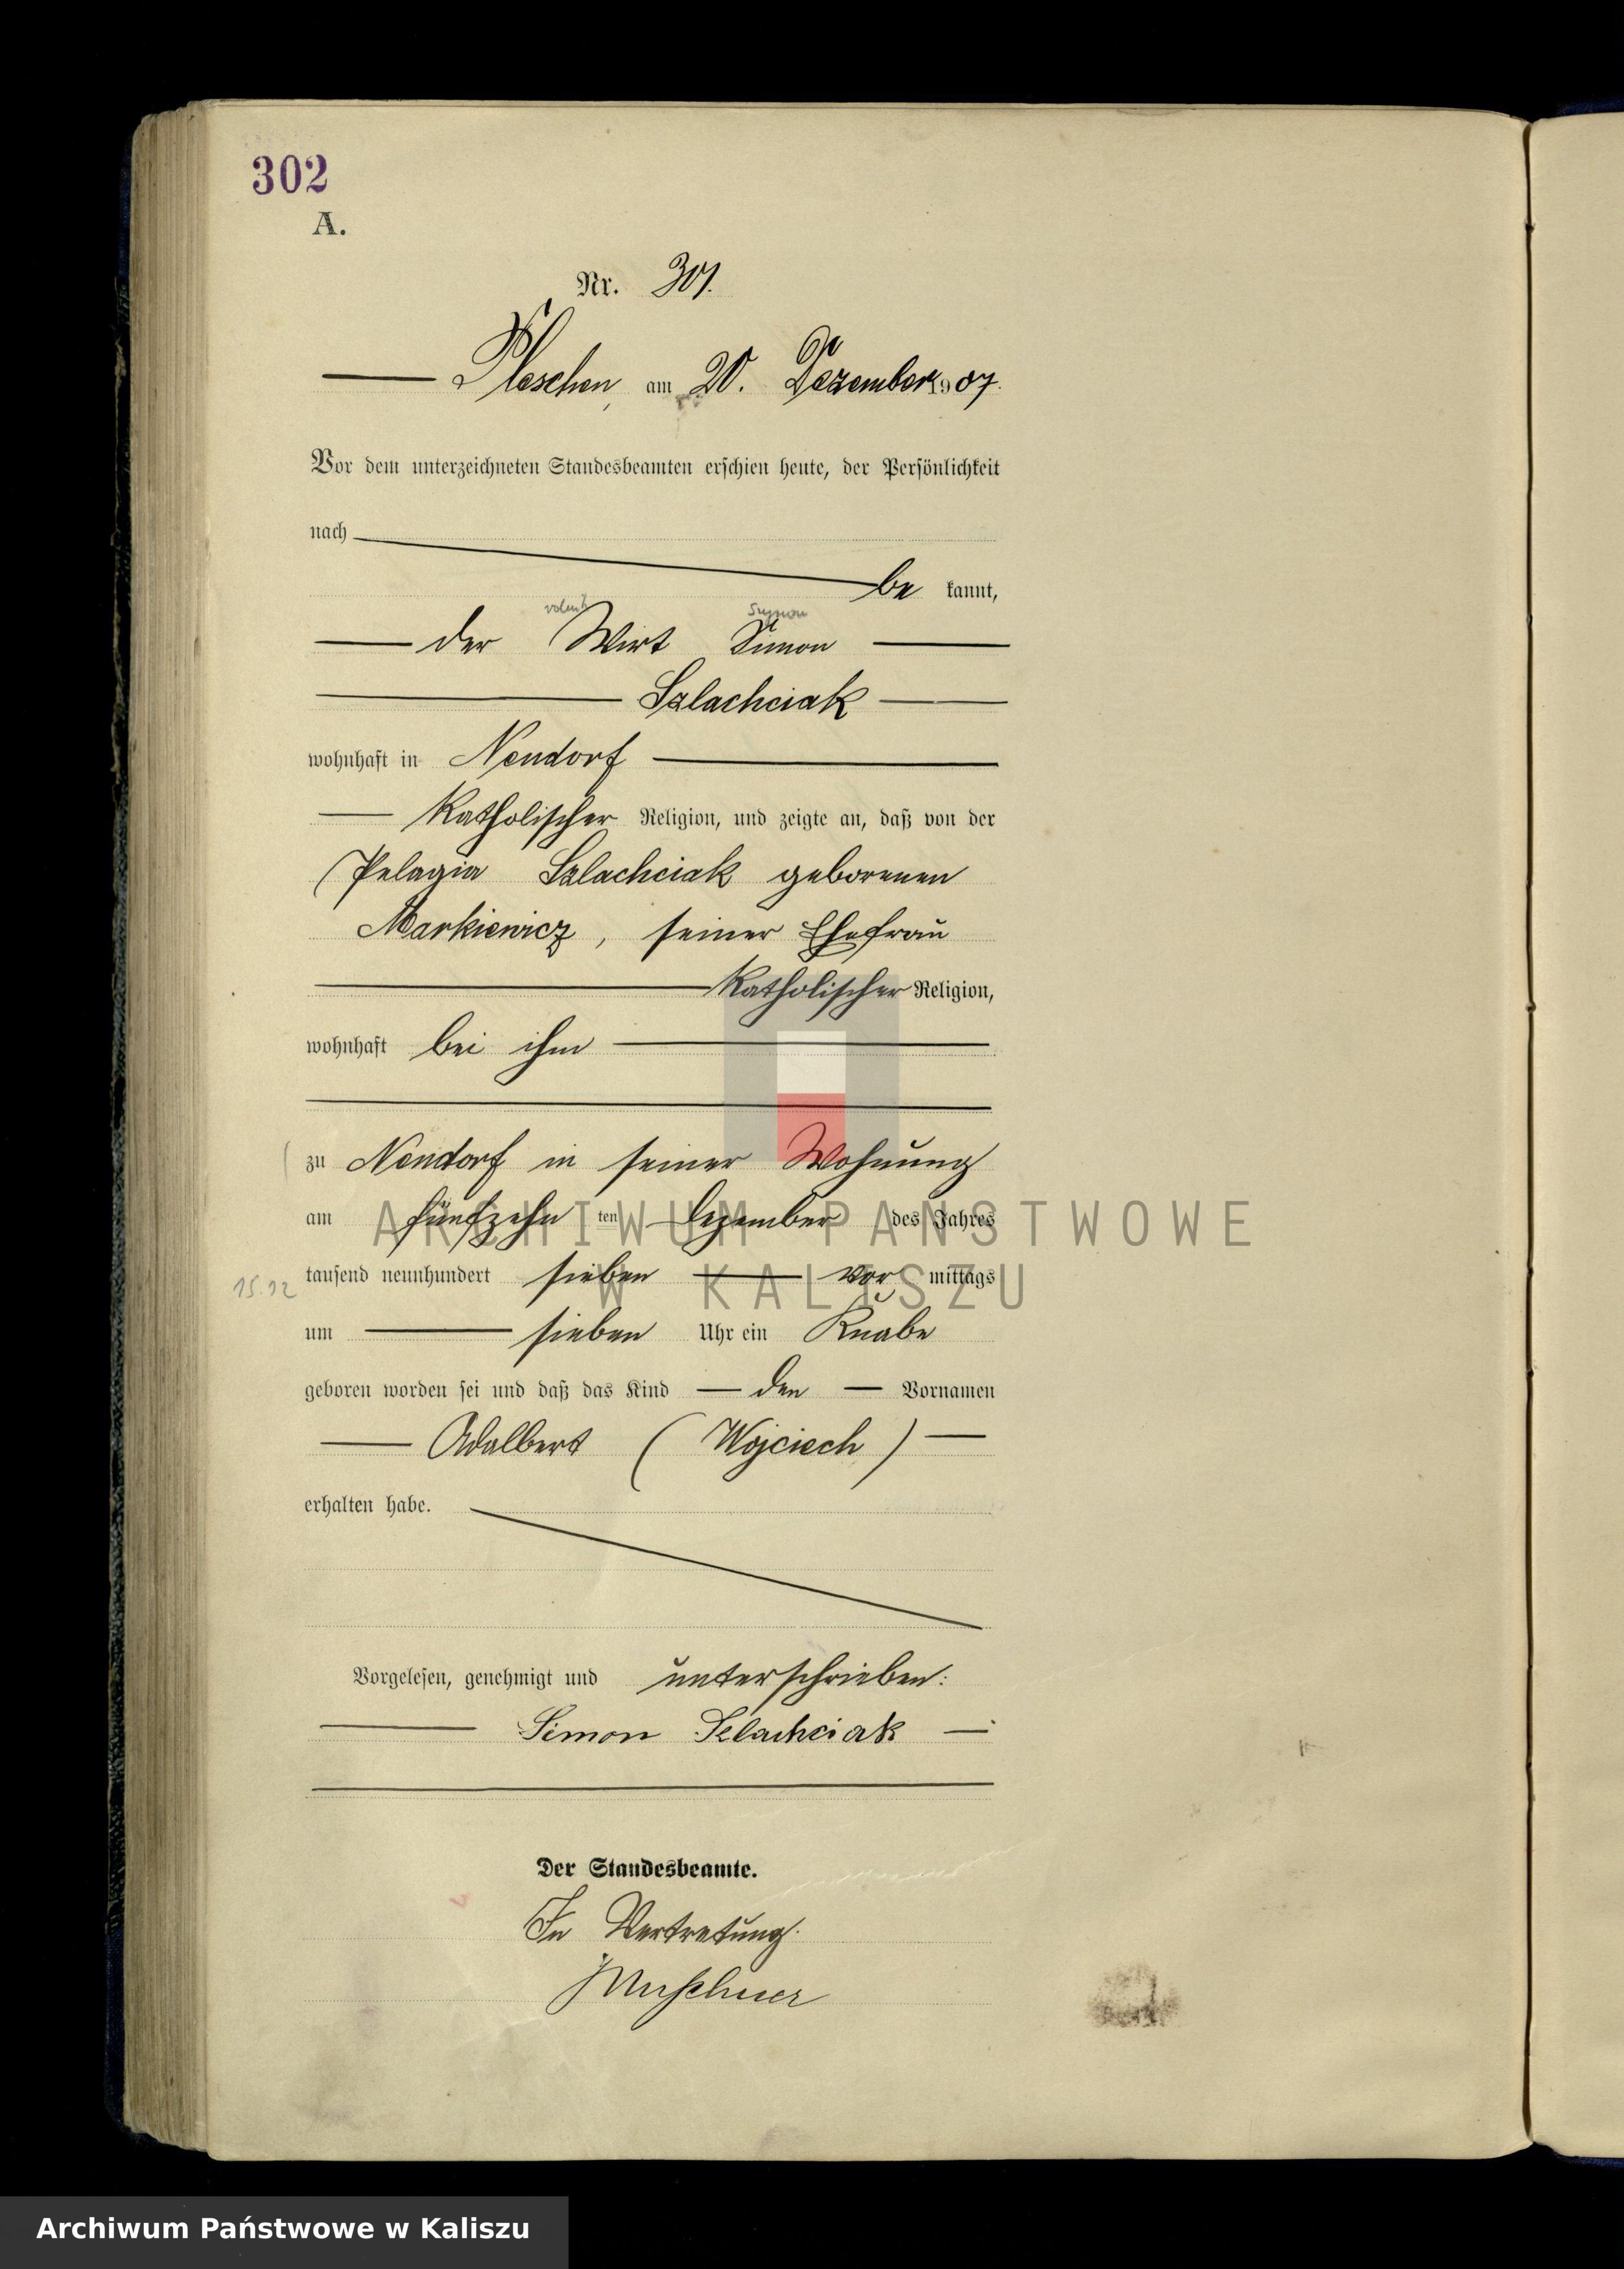 302
A.
Nr. 301.
Pleschen, am 20. Dezember 1907.
Vor dem unterzeichneten Standesbeamten erschien heute, der Persönlichkeit
nach
be kannt,
Szymon
der Wirt Simon
Szlachciak
wohnhaft in Neudorf
katholischer Religion, und zeigte an, daß von der
Pelagia Szlachciak geborenen
Markiewicz, seiner Ehefrau
katholischer Religion,
wohnhaft bei ihm
zu Neudorf in seiner Wohnung
am fünfzehn ten Dezember des Jahres
15.12 tausend neunhundert sieben vor mittags
um sieben Uhr ein Knabe
geboren worden sei und daß das Kind den Vornamen
Adalbert (Wojciech)
erhalten habe.
Vorgelesen, genehmigt und unterschrieben:
Simon Slachciak
Der Standesbeamte.
In Vertretung.
ARCHIWUM PAŃSTWOWE
W KALISZU
Archiwum Państwowe w Kaliszu